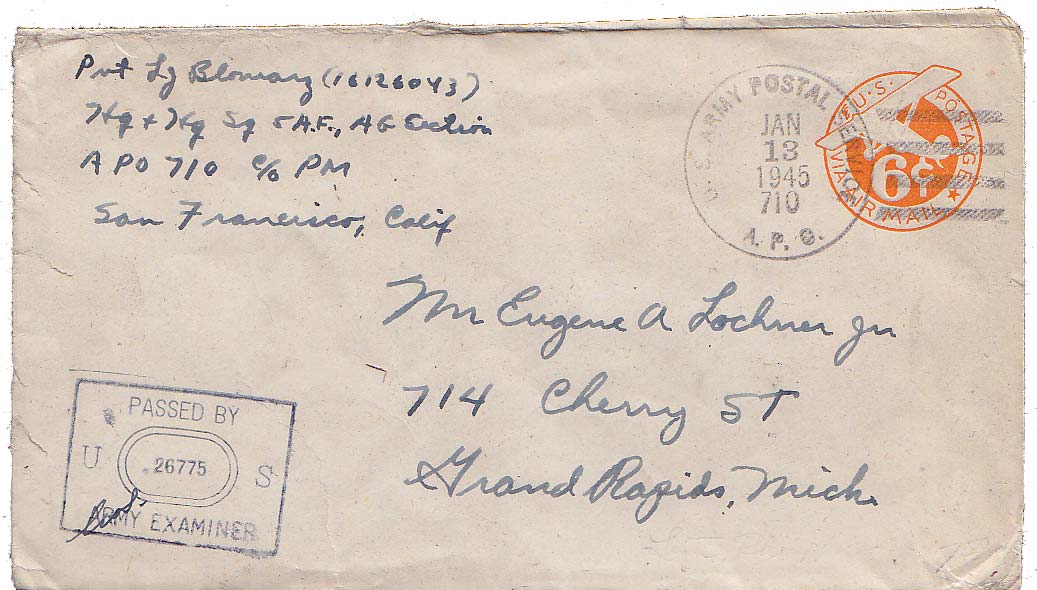 Pvt Lg Blomarz (16126043)
Hq + Hq Sq 5 A.F., AG Section
APO 710 c/o PM
San Francisco, Calif
U. S. ARMY POSTAL SERVICE
JAN
13
1945
710
A. P. O.
U.S. POSTAGE
6¢
VIA AIR MAIL
Mr Eugene A Lochner Jr
714 Cherry ST
Grand Rapids, Mich.
PASSED BY
U 26775 S
ARMY EXAMINER